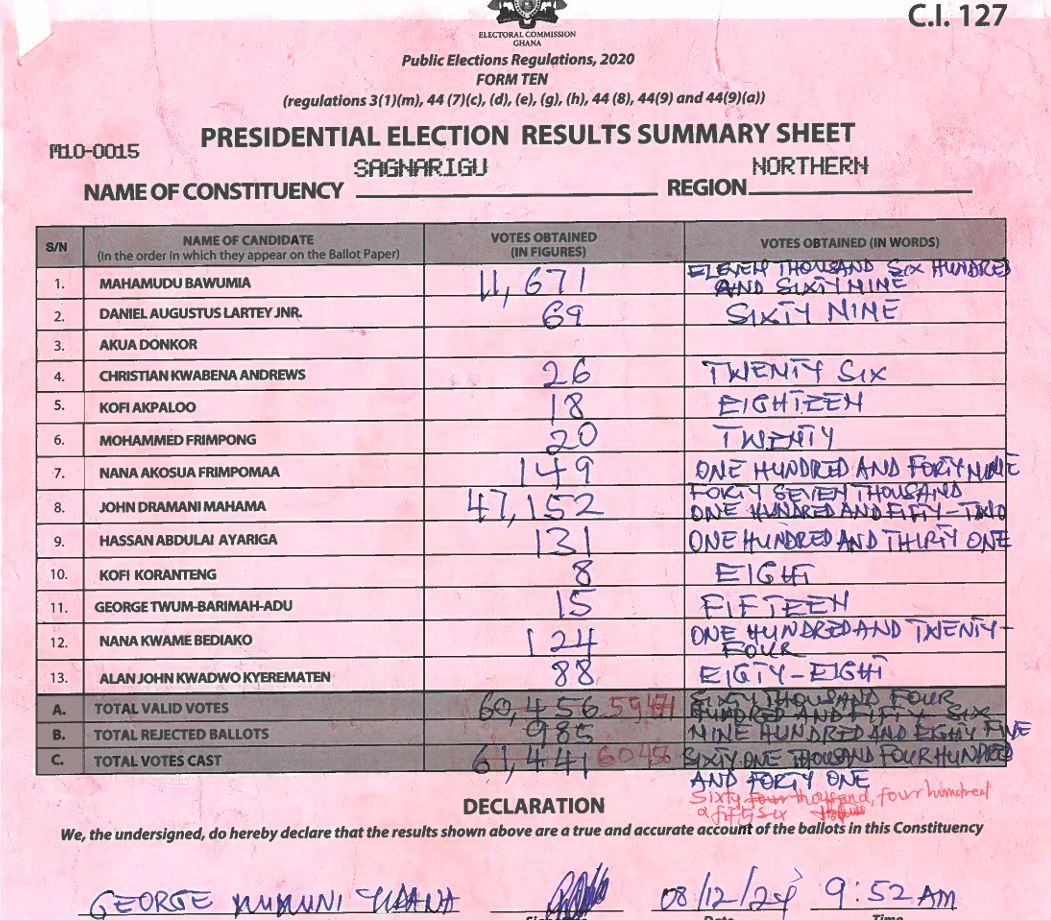 C.I. 127
ELECTORAL COMMISSION
GHANA
Public Elections Regulations, 2020
FORM TEN
(regulations 3(1)(m), 44 (7)(c), (d), (e), (g), (h), 44 (8), 44(9) and 44(9)(a))
PRESIDENTIAL ELECTION RESULTS SUMMARY SHEET
M10-0015
NAME OF CONSTITUENCY SAGNARIGU REGION NORTHERN
S/N NAME OF CANDIDATE (In the order in which they appear on the Ballot Paper) VOTES OBTAINED (IN FIGURES) VOTES OBTAINED (IN WORDS)
1. MAHAMUDU BAWUMIA 11,671 ELEVEN THOUSAND SIX HUNDRED AND SIXTY NINE
2. DANIEL AUGUSTUS LARTEY JNR. 69 SIXTY NINE
3. AKUA DONKOR
4. CHRISTIAN KWABENA ANDREWS 26 TWENTY SIX
5. KOFI AKPALOO 18 EIGHTEEN
6. MOHAMMED FRIMPONG 20 TWENTY
7. NANA AKOSUA FRIMPOMAA 149 ONE HUNDRED AND FORTY NINE
8. JOHN DRAMANI MAHAMA 47,152 FORTY SEVEN THOUSAND ONE HUNDRED AND FIFTY-TWO
9. HASSAN ABDULAI AYARIGA 131 ONE HUNDRED AND THIRTY ONE
10. KOFI KORANTENG 8 EIGHT
11. GEORGE TWUM-BARIMAH-ADU 15 FIFTEEN
12. NANA KWAME BEDIAKO 124 ONE HUNDRED AND TWENTY-FOUR
13. ALAN JOHN KWADWO KYEREMATEN 88 EIGTY-EIGHT
A. TOTAL VALID VOTES 60,456 59471 SIXTY THOUSAND FOUR HUNDRED AND FIFTY SIX
B. TOTAL REJECTED BALLOTS 985 NINE HUNDRED AND EIGHY FIVE
C. TOTAL VOTES CAST 61,441 60456 SIXTY ONE THOUSAND FOUR HUNDRED AND FORTY ONE
Sixty four thousand, four hundred
fifty six
DECLARATION
We, the undersigned, do hereby declare that the results shown above are a true and accurate account of the ballots in this Constituency
GEORGE 08/12/24 9:52 AM
Date Time